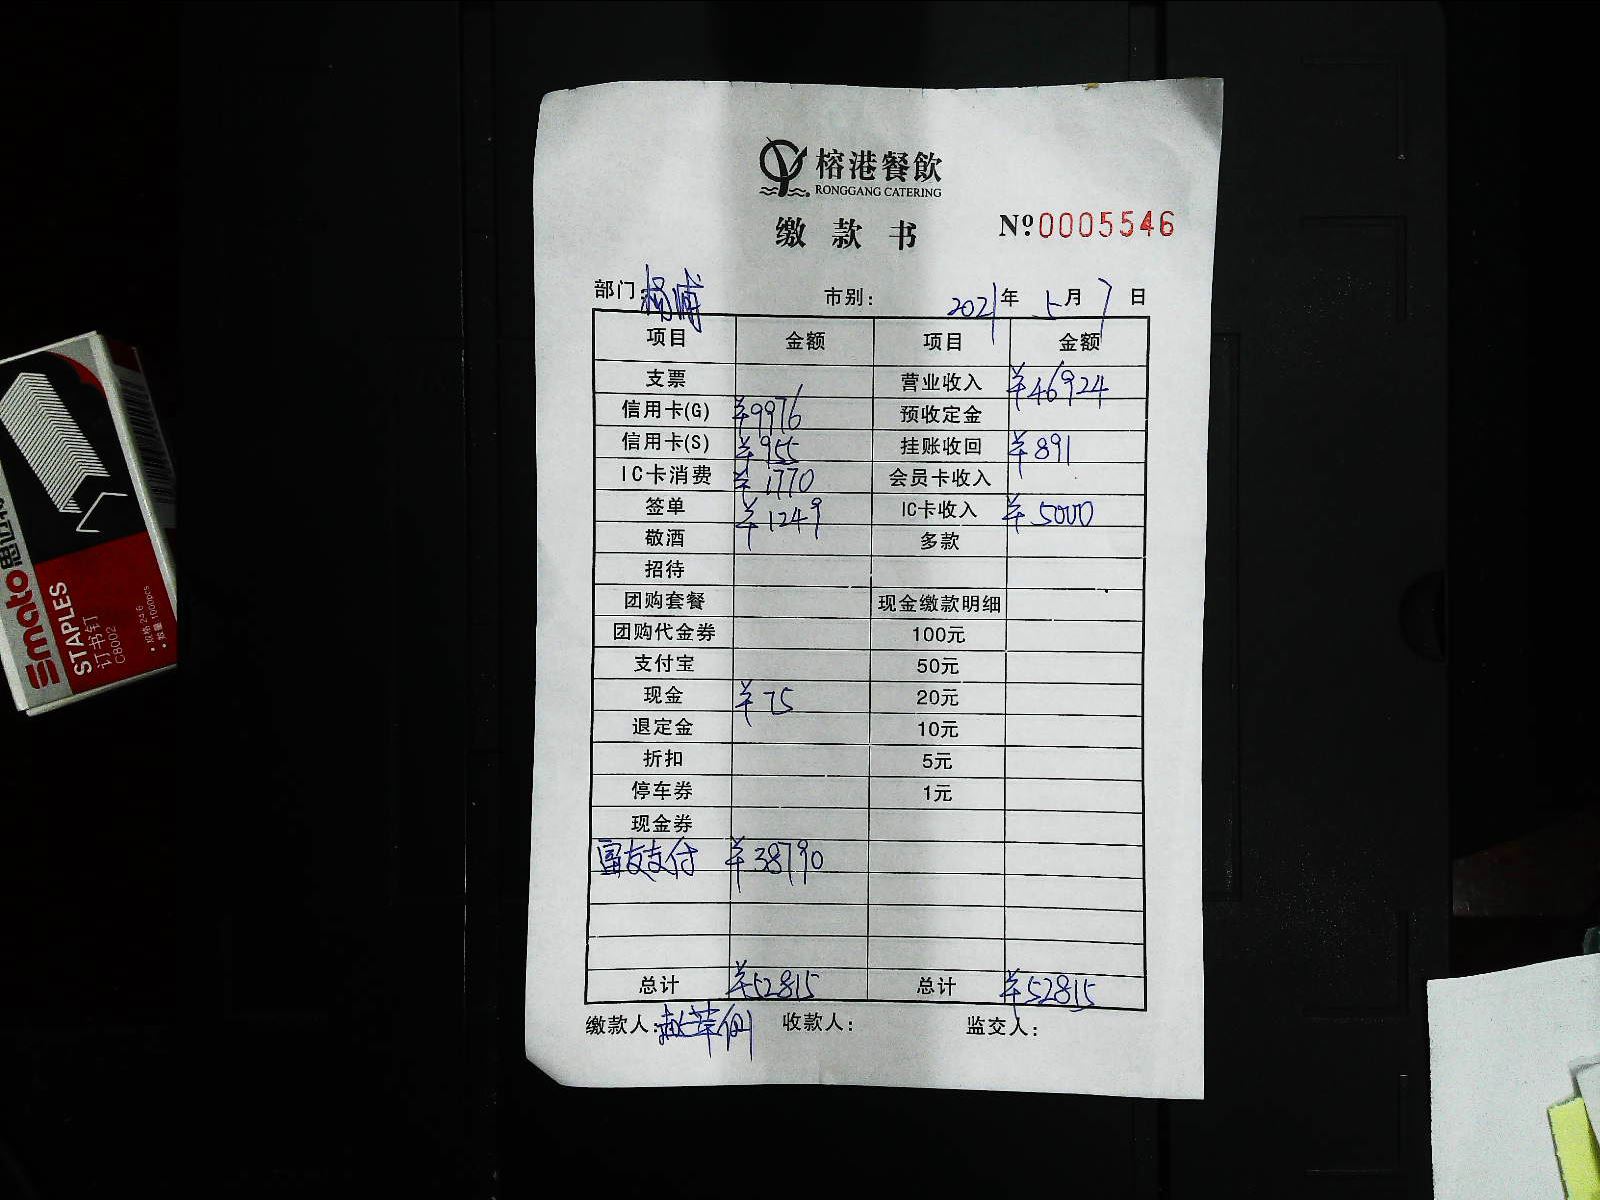 榕港餐飲
RONGGANG CATERING
缴款书
№0005546
部门: 杨浦 市别: 2021年 5月 7日
项目 金额 项目 金额
支票 营业收入 ¥46924
信用卡(G) ¥9976 预收定金
信用卡(S) ¥955 挂账收回 ¥891
IC卡消费 ¥1770 会员卡收入
签单 ¥1249 IC卡收入 ¥5000
敬酒 多款
招待
团购套餐 现金缴款明细
团购代金券 100元
支付宝 50元
现金 ¥75 20元
退定金 10元
折扣 5元
停车券 1元
现金券
富友支付 ¥38790
总计 ¥52815 总计 ¥52815
缴款人: 收款人: 监交人:
Smato
STAPLES
订书钉
C8002
•规格 24/6
•数量 1000pcs